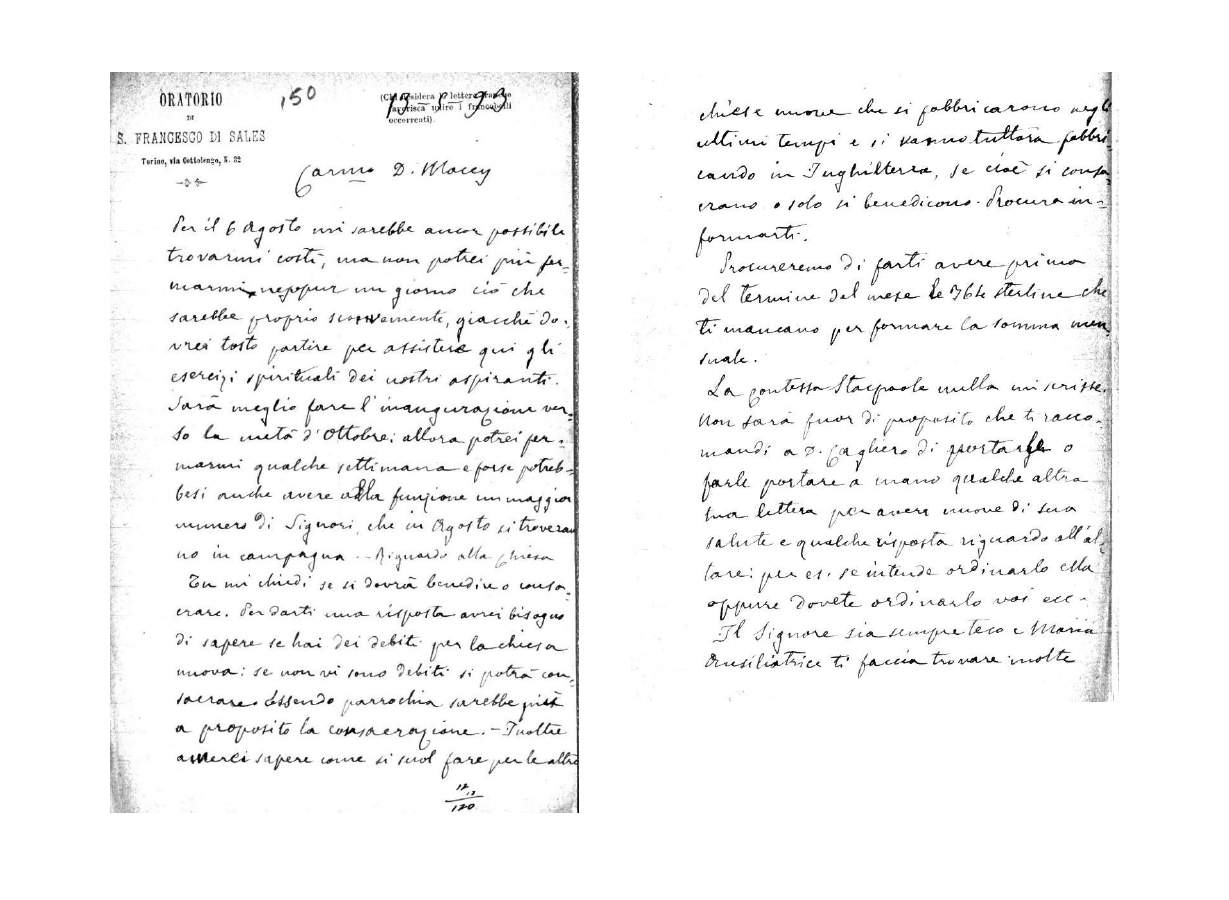 ORATORIO
DI
S. FRANCESCO DI SALES
Torino, via Cottolengo, N. 32
150
(Chi desidera le lettere franche
favorisca unire i francobolli
occorrenti).
13 - 7 - 93
Carmo D. Macey
Per il 6 Agosto mi sarebbe ancor possibile
trovarmi costì, ma non potrei più fer-
marmi neppur un giorno ciò che
sarebbe proprio sconvemente, giacchè do-
vrei tosto partire per assistere qui gli
esercizi spirituali dei nostri aspiranti.
Sarà meglio fare l'inaugurazione ver-
so la metà d'Ottobre: allora potrei fer-
marmi qualche settimana e forse potreb-
besi anche avere alla funzione un maggior
numero di Signori, che in Agosto si troveran
no in campagna. - Riguardo alla Chiesa
Tu mi chiedi se si dovrà benedire o consa-
crare. Per darti una risposta avrei bisogno
di sapere se hai dei debiti per la chiesa
nuova: se non vi sono debiti si potrà con-
sacrare. Essendo parrochia sarebbe più
a proposito la consacrazione. - Inoltre
amerei sapere come si suol fare per le altre
12
13
120
chiese nuove che si fabbricarono negli
ultimi tempi e si vanno tuttora fabbri-
cando in Inghilterra, se cioè si consa-
crano o solo si benedicono. Procura in-
formarti.
Procureremo di farti avere prima
del termine del mese le 364 sterline che
ti mancano per formare la somma men-
suale.
La Contessa Stacpoole nulla mi scrisse.
Non sarà fuor di proposito che ti racco-
mandi a D. Cagliero di portarle o
farle portare a mano qualche altra
tua lettera per avere nuove di sua
salute e qualche risposta riguardo all'al-
tare: per es. se intende ordinarlo ella
oppure dovete ordinarlo voi ecc.
Il Signore sia sempre teco e Maria
Ausiliatrice ti faccia trovare molte